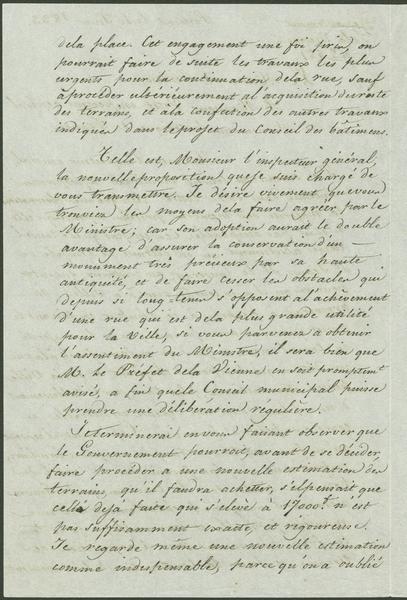 dela place. Cet engagement une foi pris, on
pourrait faire de suite les travaux les plus
urgents pour la continuation dela rue, sauf
à procéder ulterieurement a l'acquisition du reste
des terrains, et à la confection des autres travaux
indiqués dans le projet du Conseil des bâtimens.
Telle est, Monsieur l'inspecteur général,
la nouvelle proposition que je suis chargé de
vous transmettre. Je désire vivement que vous
trouviez les moyens dela faire agréer par le
Ministre; car son adoption aurait le double
avantage d'assurer la conservation d'un
monument très précieux par sa haute
antiquité, et de faire cesser les obstacles qui
depuis si long-tems s'opposent al'achèvement
d'une rue qui est dela plus grande utilité
pour la Ville, si vous parvenez à obtenir
l'assentiment du Ministre, il sera bien que
M. Le Préfet dela Vienne en soit promptemt
avisé, a fin que le Conseil municipal puisse
prendre une déliberation régulière.
Je terminerai en vous faisant observer que
le Gouvernement pourroit, avant de se décider,
faire procéder a une nouvelle estimation des
terrains, qu'il faudra achetter, s'il pensait que
celle deja faite qui s'eleve à 17000f n'est
pas suffisamment exacte, et rigoureuse.
Je regarde même une nouvelle estimation
comme indispensable, parce qu'on a oublié